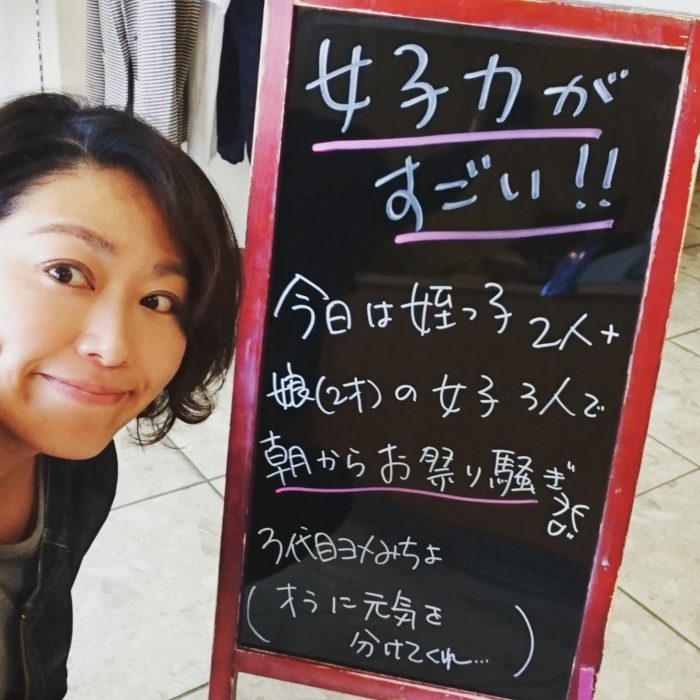 女子力が
すごい!!
今日は姪っ子2人+
娘(2才)の女子3人で
朝からお祭り騒ぎ
3代目ヨメみちよ
(オラに元気を
分けてくれ…)